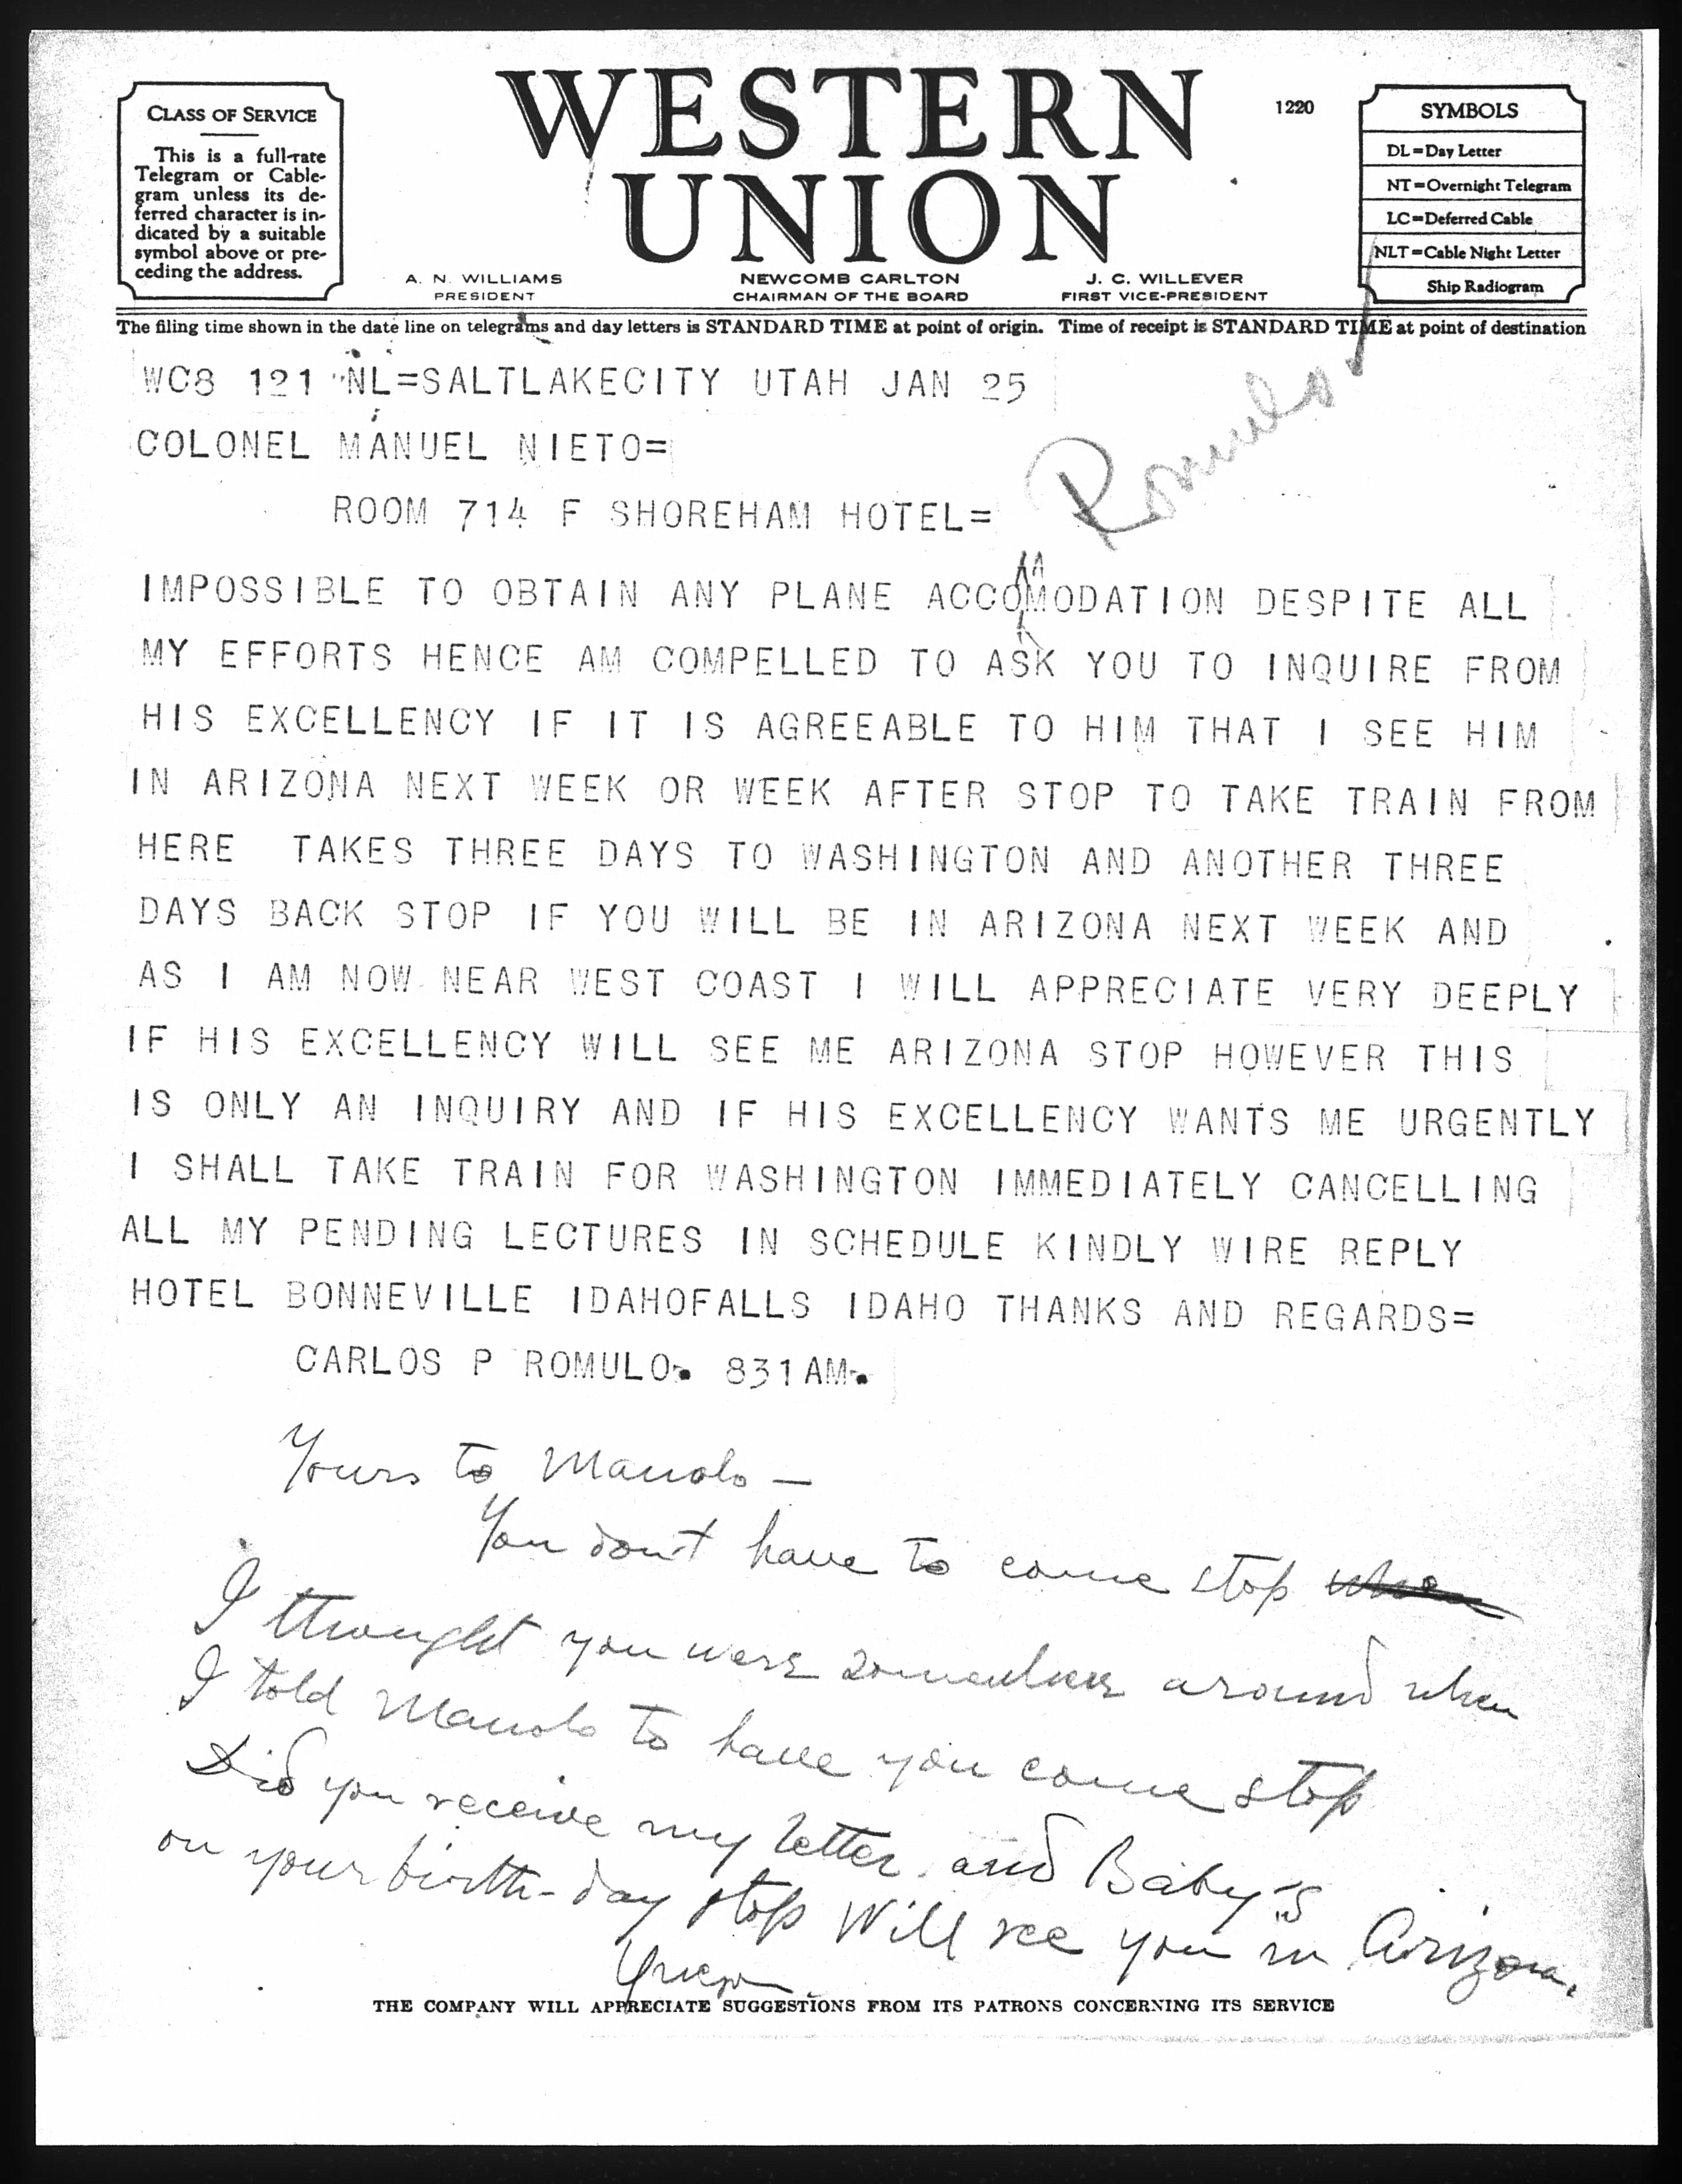 CLASS OF SERVICE
This is a full-rate
Telegram or Cable-
gram unless its de-
ferred character is in-
dicated by a suitable
symbol above or pre-
ceding the address.
WESTERN
UNION
1220
SYMBOLS
DL=Day Letter
NT=Overnight Telegram
LC=Deferred Cable
NLT=Cable Night Letter
Ship Radiogram
A. N. WILLIAMS
PRESIDENT
NEWCOMB CARLTON
CHAIRMAN OF THE BOARD
J. C. WILLEVER
FIRST VICE-PRESIDENT
The filing time shown in the date line on telegrams and day letters is STANDARD TIME at point of origin. Time of receipt is STANDARD TIME at point of destination
WC8 121 NL=SALTLAKECITY UTAH JAN 25
COLONEL MANUEL NIETO=
ROOM 714 F SHOREHAM HOTEL=
Romulo
IMPOSSIBLE TO OBTAIN ANY PLANE ACCOMODATION DESPITE ALL
MY EFFORTS HENCE AM COMPELLED TO ASK YOU TO INQUIRE FROM
HIS EXCELLENCY IF IT IS AGREEABLE TO HIM THAT I SEE HIM
IN ARIZONA NEXT WEEK OR WEEK AFTER STOP TO TAKE TRAIN FROM
HERE TAKES THREE DAYS TO WASHINGTON AND ANOTHER THREE
DAYS BACK STOP IF YOU WILL BE IN ARIZONA NEXT WEEK AND
AS I AM NOW NEAR WEST COAST I WILL APPRECIATE VERY DEEPLY
IF HIS EXCELLENCY WILL SEE ME ARIZONA STOP HOWEVER THIS
IS ONLY AN INQUIRY AND IF HIS EXCELLENCY WANTS ME URGENTLY
I SHALL TAKE TRAIN FOR WASHINGTON IMMEDIATELY CANCELLING
ALL MY PENDING LECTURES IN SCHEDULE KINDLY WIRE REPLY
HOTEL BONNEVILLE IDAHOFALLS IDAHO THANKS AND REGARDS=
CARLOS P ROMULO. 831AM.
Yours to Manolo —
You don't have to come stop
I thought you were somewhere around when
I told Manolo to have you come stop
Did you receive my letter and Baby's
on your birth-day stop Will see you in Arizona.
Quezon
THE COMPANY WILL APPRECIATE SUGGESTIONS FROM ITS PATRONS CONCERNING ITS SERVICE